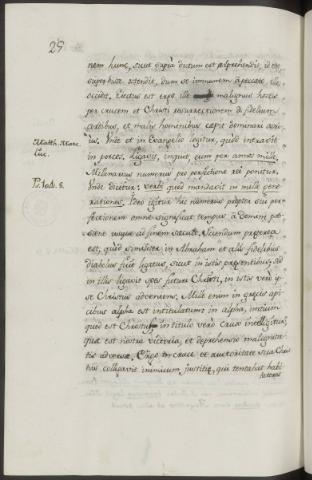 29
nem hunc, sicut supra dictum est reprehendit, id est
super hunc ostendit, dum et immanem
occidit. Electus est ergo ille malignus hostis
per crucem et Christi resurrectionem de fidelium
cordibus, et malis hominibus cœpit dominari
Unde et in Evangelio legitur, quod intravit
in porcos. Ligavit, inquit, eum per annos mille.
Millenarius numerus pro perfectione rei ponitur,
Unde dicitur: verbi quod mandavit in mille gene
rationes. Ideo igitur hic numerus propter sui per
fectionem omne significat tempus a Domini
usque ad finem sæculi. Sciendum præterea
est, quod similiter in Abraham et aliis fidelibus
diabolus fuit ligatus, sicut in istis præsentibus, sed
in illis ligavit spes futuri Christi, in istis vero
Christus adveniens. Mille enim in græcis
cibus alpha est intitulatum in alpha, initium
quod est Christus, in titulo vero caux intelligitur,
quæ est nostra victoria, et deprehensio malignita
tis adversæ. Ergo in cruce et auctoritate sua Chris
tus colligavit inimicum justitiæ, qui tentabat
Matth. Marc.
Luc.
Psal. 8.